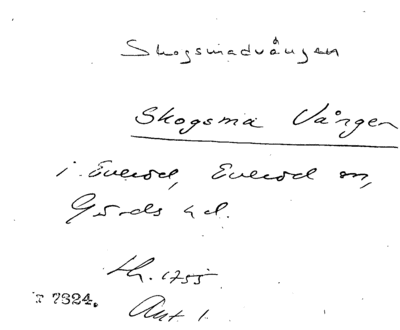 Skogsmadvången
Skogsma Vången
i Everöd, Everöd sn,
Gärds hd.
Lh. 1755
T 7324.
Ant. 1